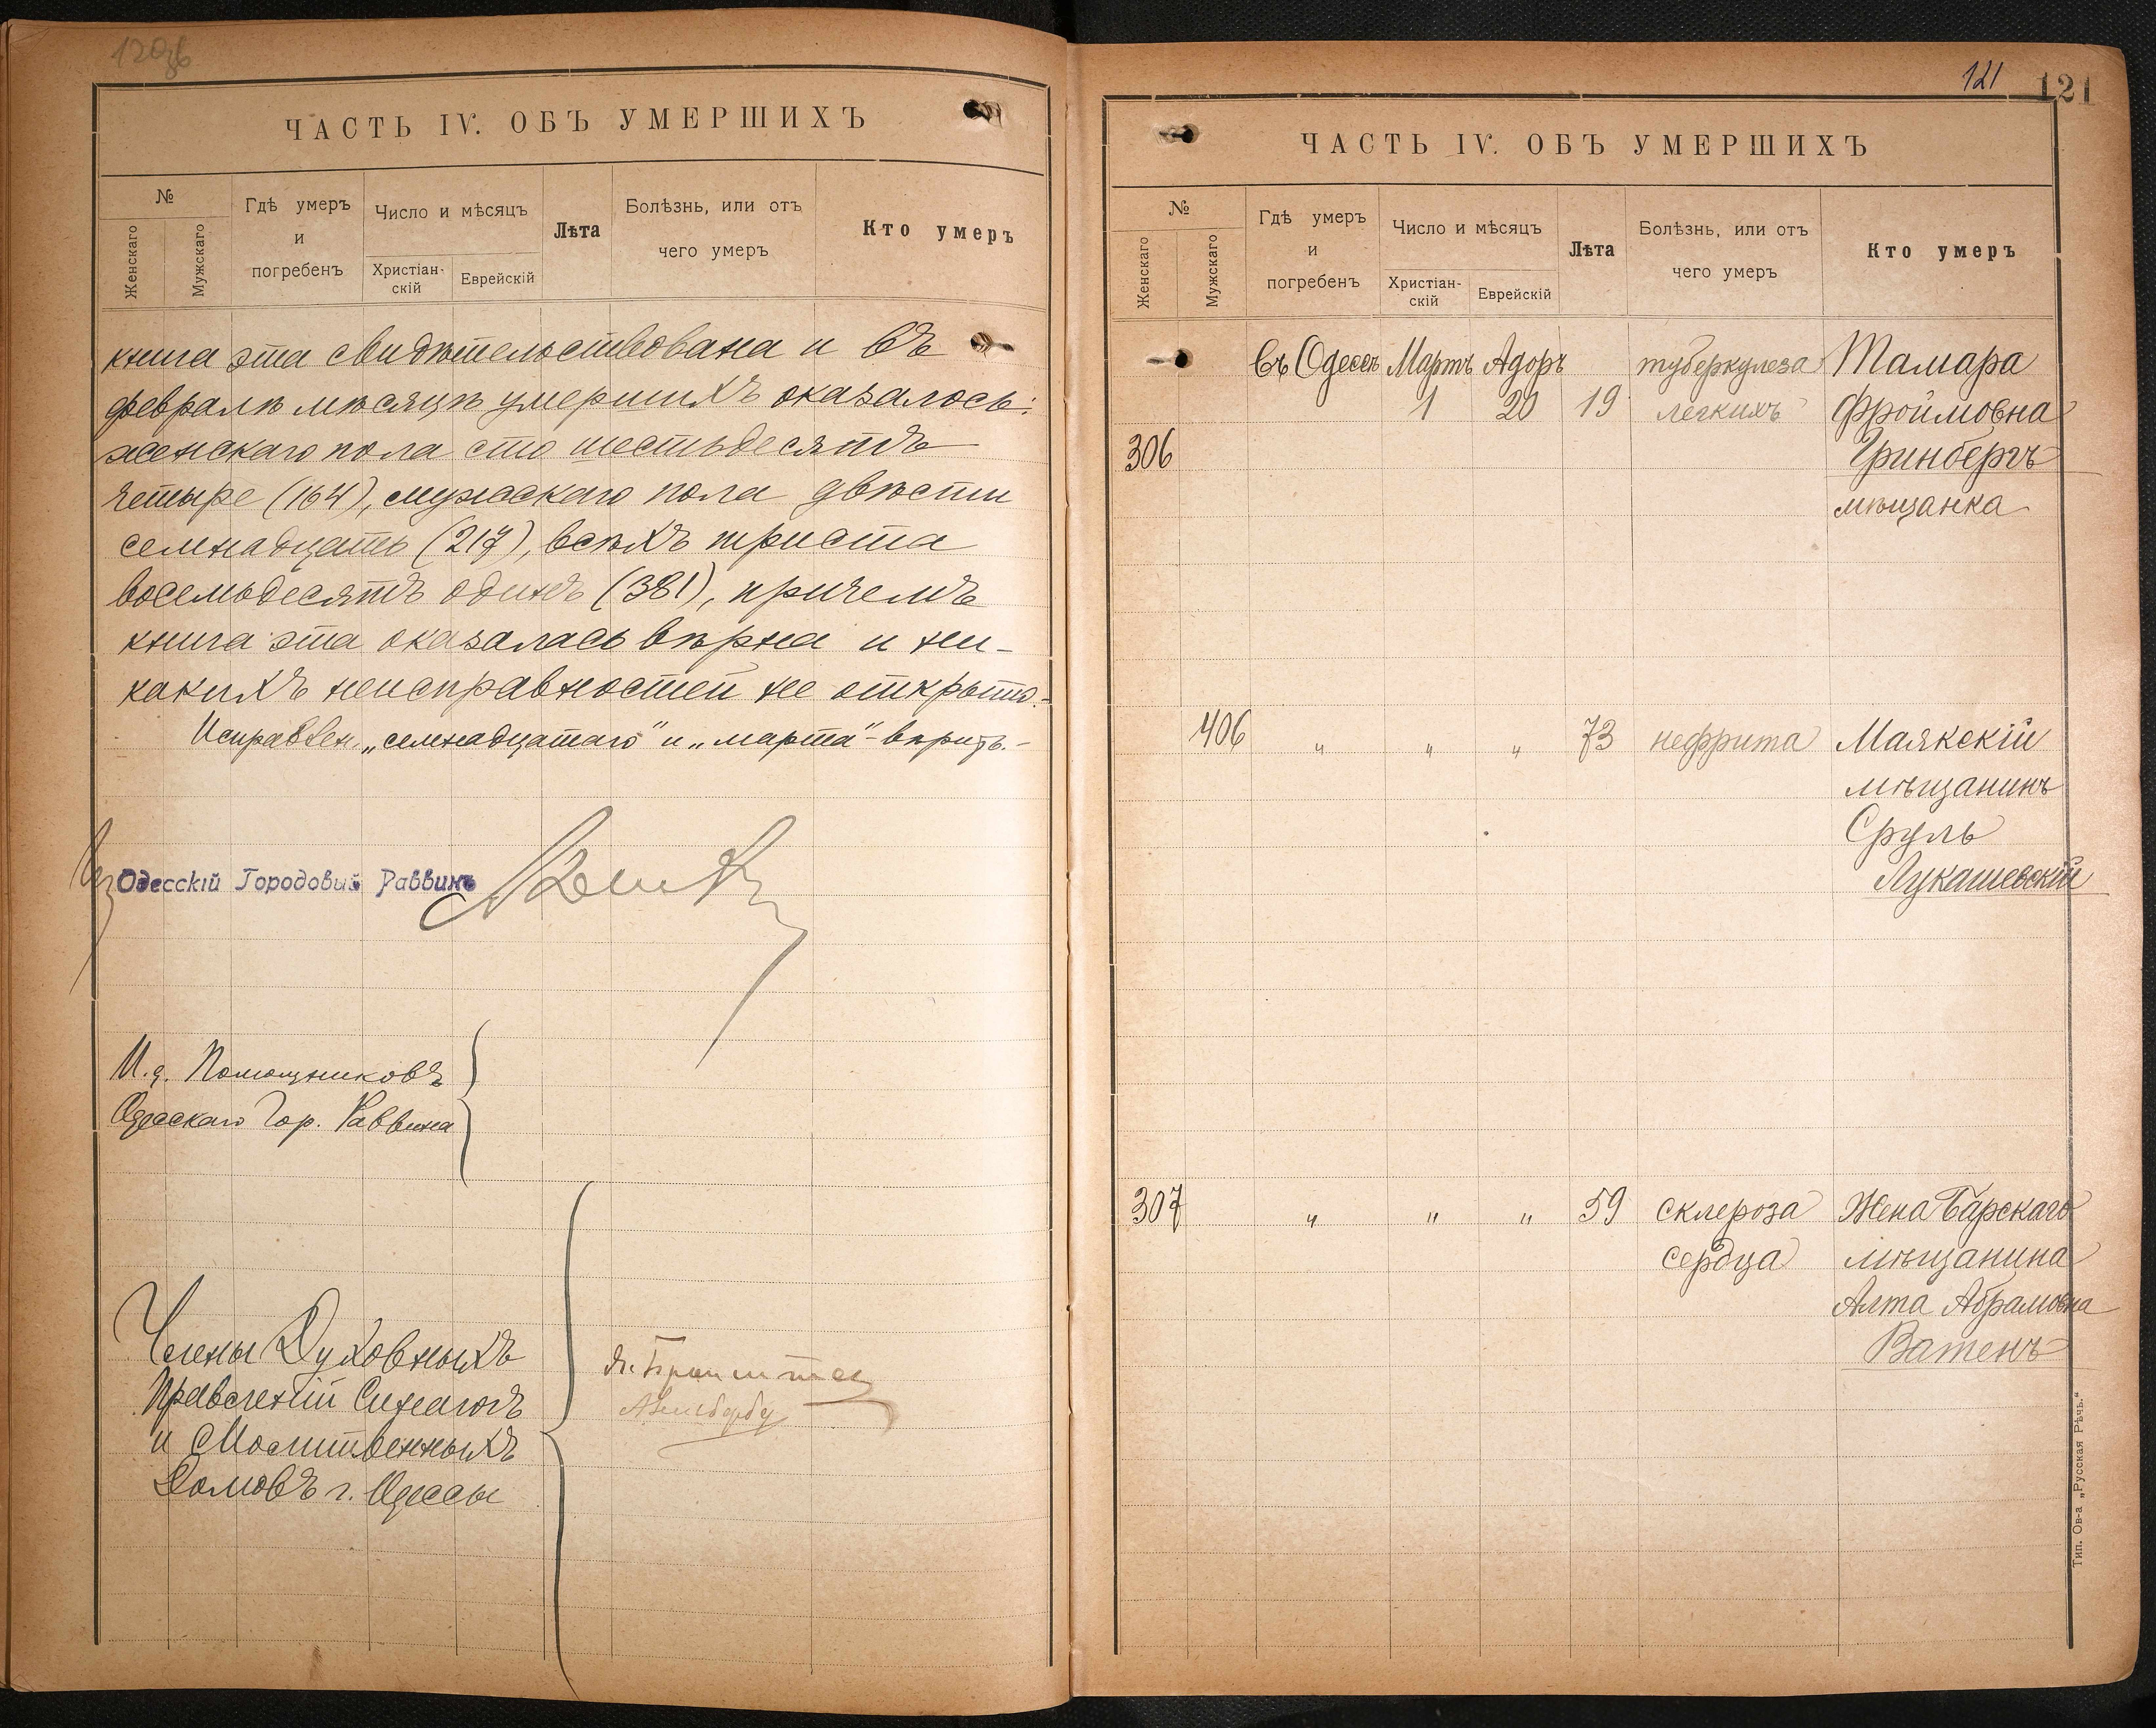 120об
ЧАСТЬ IV. ОБЪ УМЕРШИХЪ
№
Женскаго
Мужскаго
Гдѣ умеръ
и
погребенъ
Число и мѣсяцъ
Христіан-
скій
Еврейскій
Лѣта
Болѣзнь, или отъ
чего умеръ
Кто умеръ
книга эта свидѣтельствована и въ
февралѣ мѣсяцѣ умершихъ оказалось:
женскаго пола сто шестьдесятъ
четыре (164), мужскаго пола двѣсти
семнадцать (217), всѣхъ триста
восемьдесятъ одинъ (381), причемъ
книга эта оказалась вѣрна и ни-
какихъ неисправностей не открыто.-
Исправлен. „семнадцатаго" и „марта"- вѣрить.-
Одесскій Городовый Раввинъ
И.д. Помощниковъ
Одесскаго Гор. Раввина
Члены Духовныхъ
Правленій Синагогъ
и Молитвенныхъ
Домовъ г. Одессы
121
121
ЧАСТЬ IV. ОБЪ УМЕРШИХЪ
№
Женскаго
Мужскаго
Гдѣ умеръ
и
погребенъ
Число и мѣсяцъ
Христіан-
скій
Еврейскій
Лѣта
Болѣзнь, или отъ
чего умеръ
Кто умеръ
въ Одессѣ Мартъ Адоръ туберкулеза Тамара
1 20 19 легкихъ Фроймовна
306 Гринбергъ
мѣщанка
406 " " " 73 нефрита Маякскій
мѣщанинъ
Сруль
Лукашевскій
307 " " " 59 склероза Жена Барскаго
сердца мѣщанина
Алта Абрамовна
Ватенъ
Тип. Ов-а „Русская Рѣчь."